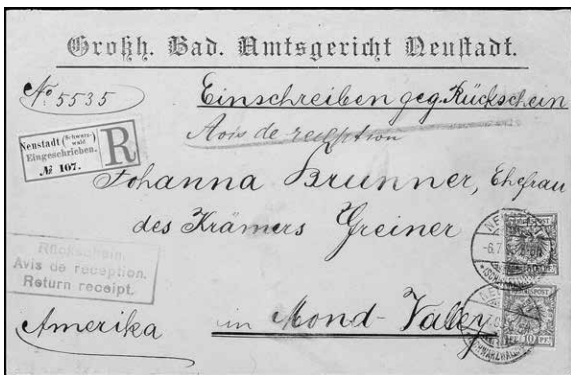 Großh. Bad. Amtsgericht Neustadt.
No 5535
Einschreiben geg. Rückschein
Avis de reception
Neustadt (Schwarzwald)
Eingeschrieben.
№ 167.
R
Johanna Brunner, Ehefrau
des Krämers Greiner
Rückschein.
Avis de réception.
Return receipt.
Amerika
in Mond-Valey